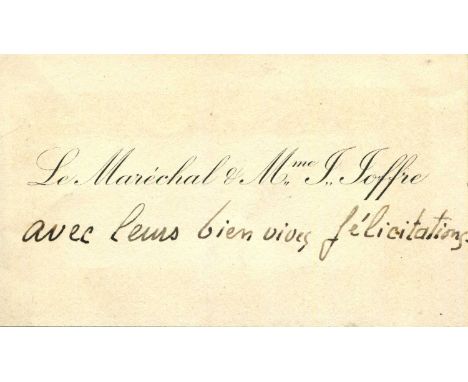 Le Maréchal & Mme J. Joffre
avec leurs bien vives félicitations.